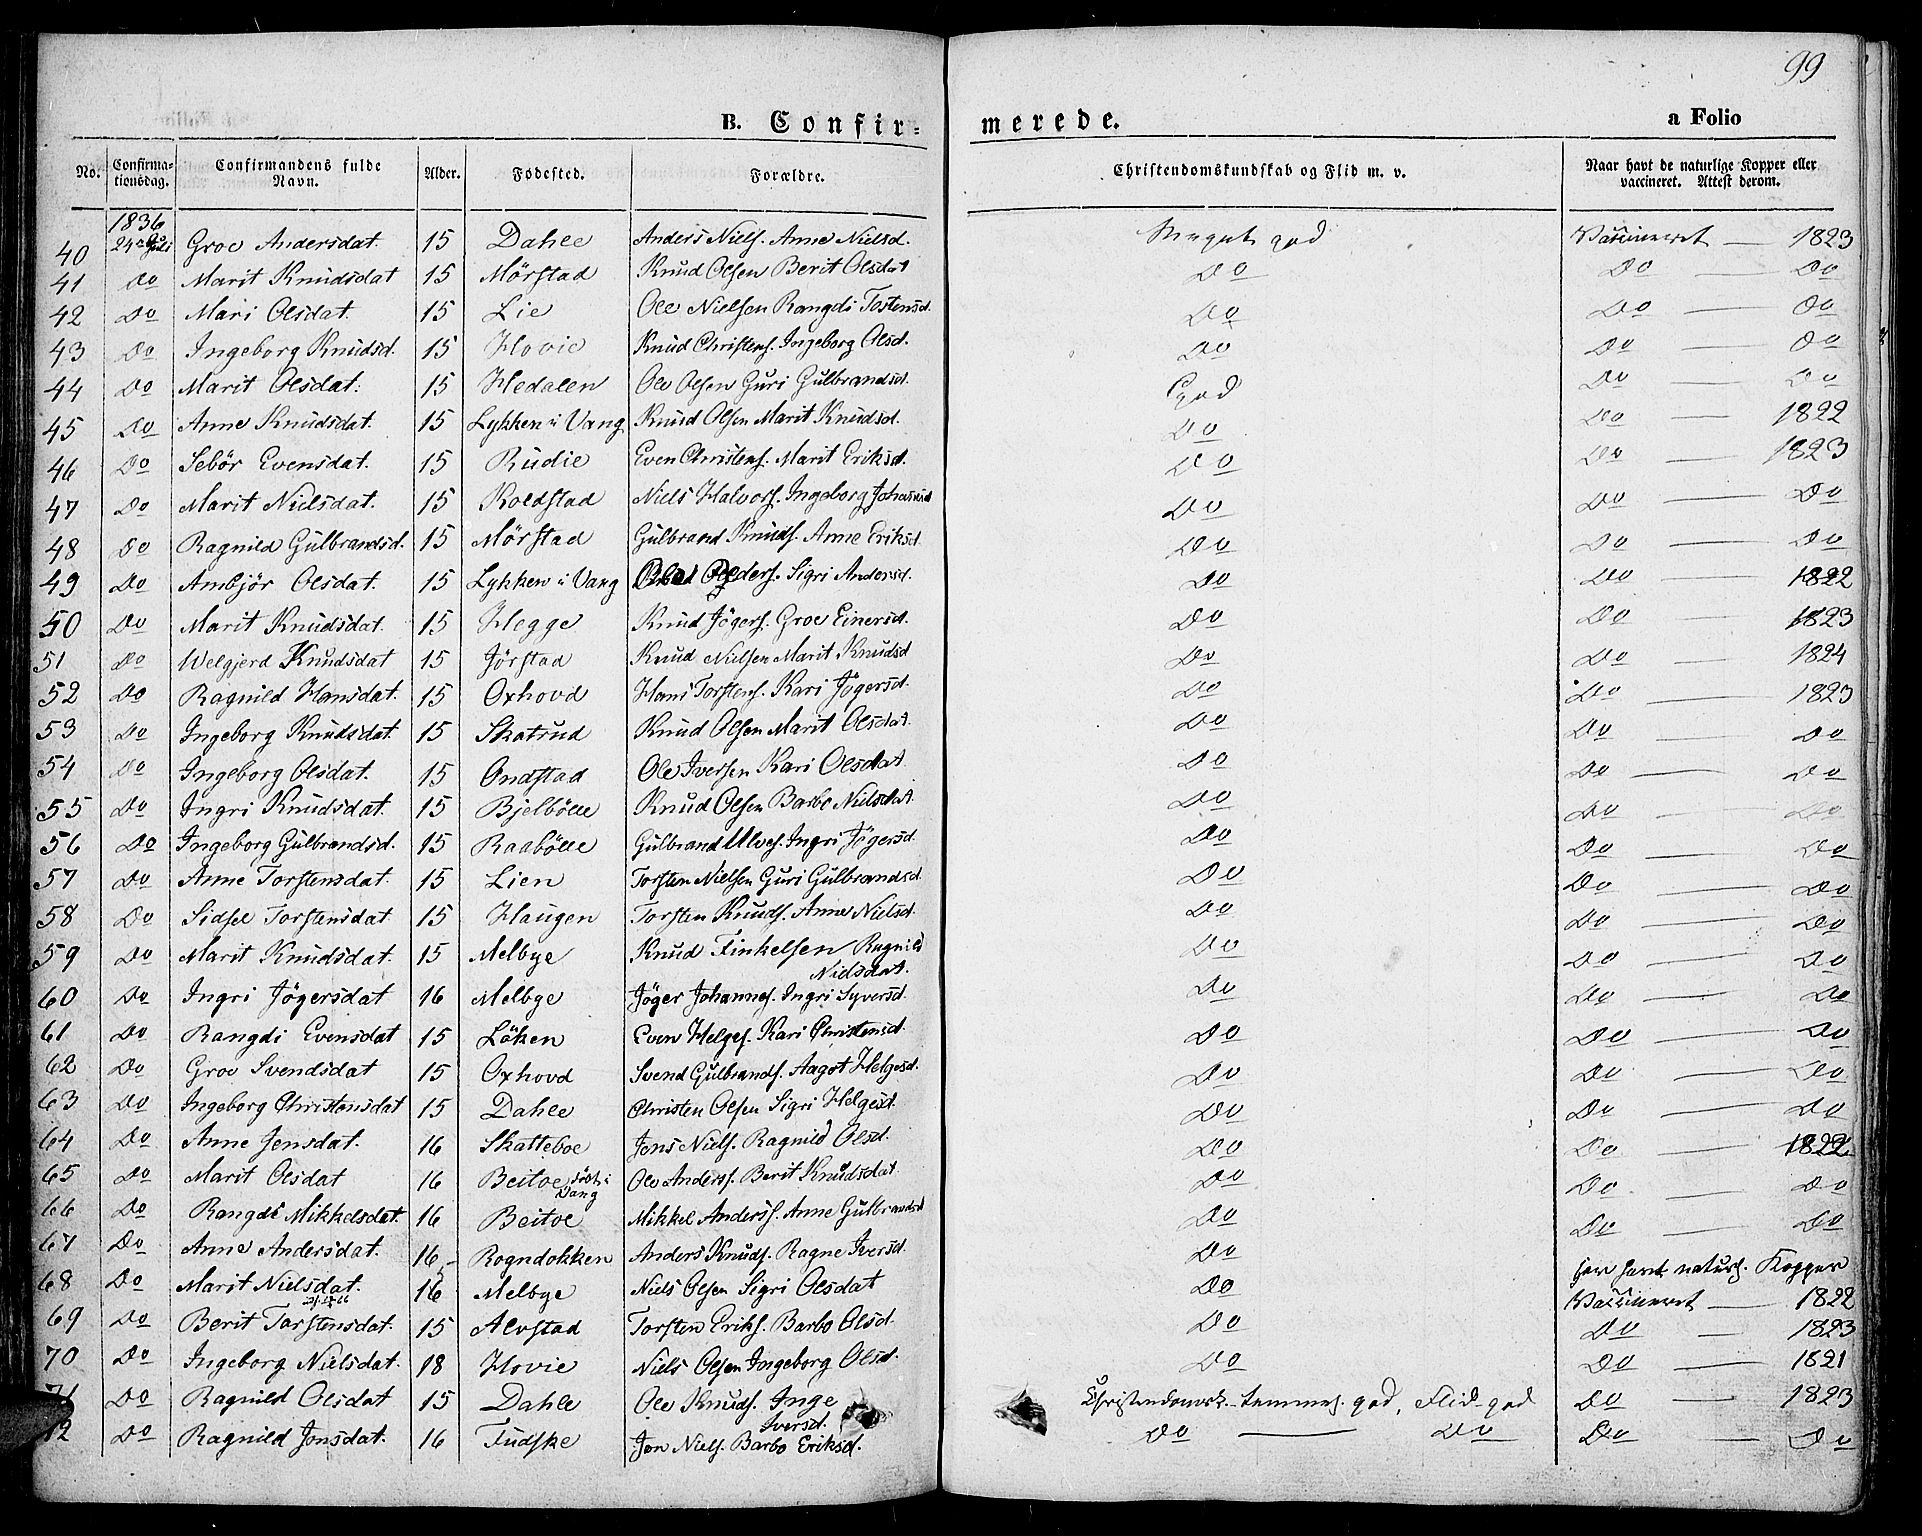 99
B. Confir- merede. a Folio
No. Confirma-tionsdag. Confirmandens fulde Navn. Alder. Fødested. Forældre. Christendomskundskab og Flid m. v. Naar havt de naturlige Kopper eller vaccineret. Attest derom.
1836
40 24de Juli Groe Andersdat. 15 Dahle Anders Niels. Anne Nielsd. Meget god Vaccineret — 1823
41 Do Marit Knudsdat 15 Mörstad Knud Olsen Berit Olsdat Do Do — Do
42 Do Mari Olsdat. 15 Lie Ole Nielsen Rangdi Torstensd. Do Do — Do
43 Do Ingeborg Knudsd. 15 Hovie Knud Christens. Ingeborg Olsd. Do Do — Do
44 Do Marit Olsdat. 15 Hedalen Ole Olsen Guri Gulbrandsd. God Do — Do
45 Do Anne Knudsdat. 15 Lykken i Vang Knud Olsen Marit Knudsd. Do Do — 1822
46 Do Sebör Evensdat. 15 Rudie Even Christens. Marit Eriksd. Do Do — 1823
47 Do Marit Nielsdat. 15 Roldstad Niels Halvors. Ingeborg Do Do — Do
48 Do Ragnild Gulbrandsd. 15 Mörstad Gulbrand Knuds. Anne Eriksd. Do Do — Do
49 Do Ambjör Olsdat. 15 Lykken i Vang Peders. Sigri Andersd. Do Do — 1822
50 Do Marit Knudsdat. 15 Hegge Knud Jögers. Groe Einersd. Do Do — 1823
51 Do Welgjerd Knudsdat 15 Jörstad Knud Nielsen Marit Knudsd Do Do — 1824
52 Do Ragnild Hansdat. 15 Oxhovd Hans Torstens. Kari Jögersd. Do Do — 1823
53 Do Ingeborg Knudsdat. 15 Skatrud Knud Olsen Marit Olsdat. Do Do — Do
54 Do Ingeborg Olsdat. 15 Ondstad Ole Iversen Kari Olsdat Do Do — Do
55 Do Ingri Knudsdat. 15 Bjelbölle Knud Olsen Barbo Nielsdat. Do Do — Do
56 Do Ingeborg Gulbrandsd. 15 Raabölle Gulbrand Ulves. Ingri Jögersd. Do Do — Do
57 Do Anne Torstensdat. 15 Lien Torsten Nielsen Guri Gulbrandsd. Do Do — Do
58 Do Sidsel Torstensdat. 15 Haugen Torsten Knuds. Anne Nielsd. Do Do — Do
59 Do Marit Knudsdat. 15 Melbye Knud Finkelsen Ragnild Do Do — Do
Nielsdat.
60 Do Ingri Jögersdat 16 Melbye Jöger Johannes. Ingri Syversd. Do Do — Do
61 Do Rangdi Evensdat 15 Löken Even Helges. Kari Christensd. Do Do — Do
62 Do Groe Svendsdat 15 Oxhovd Svend Gulbrands. Aagot Helgesd. Do Do — Do
63 Do Ingeborg Christensdat 15 Dahle Christen Olsen Sigri Helgesd. Do Do — Do
64 Do Anne Jensdat. 16 Skatteboe Jens Niels. Ragnild Olsd. Do Do — 1822
65 Do Marit Olsdat 16 Beitoe föd i Vang Ole Anders. Berit Knudsdat. Do Do — Do
66 Do Rangdi Mikkelsdat. 16 Beitoe Mikkel Anders. Anne Gulbrandsd Do Do — Do
67 Do Anne Andersdat. 16 Rogndokken Anders Knuds. Ragne Iversd. Do har havt naturl. Kopper
68 Do Marit Nielsdat. 16 Melbye Niels Olsen Sigri Olsdat Do Vaccineret — 1822
69 Do Berit Torstensdat. 15 Alvstad Torsten Eriks. Barbo Olsd. Do Do — 1823
70 Do Ingeborg Nielsdat. 18 Hovie Niels Olsen Ingeborg Olsd. Do Do — 1821
71 Do Ragnild Olsdat 15 Dahle Ole Knuds. Inge Christendomsk. temmel. god, Flid god Do — 1823
Iversd.
72 Do Ragnild Jonsdat. 16 Tudske Jon Niels. Barbo Eriksd. Do — Do Do — Do